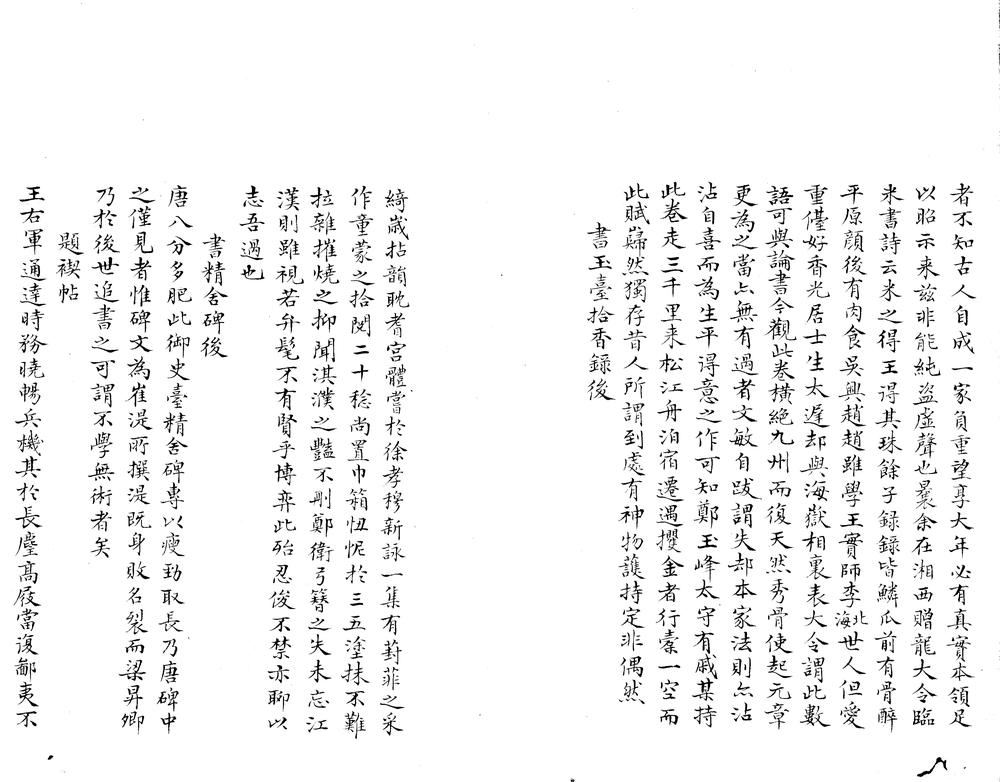 者不知古人自成一家負重望享大年必有真實本領足
以昭示来兹非能純盗虚聲也曩余在湘西贈龍大令臨
米書詩云米之得王得其珠餘子録録皆鱗爪前有骨醉
平原顔後有肉食吳興趙趙雖學王實師李北海世人但愛
重儓好香光居士生太遅却與海嶽相裏表大令謂此數
語可與論書今觀此卷横絶九州而復天然秀骨使起元章
更為之當亦無有過者文敏自跋謂失却本家法則亦沾
沾自喜而為生平得意之作可知鄭玉峰太守有戚某持
此卷走三千里来松江舟泊宿遷遇攫金者行橐一空而
此賦巋然獨存昔人所謂到處有神物護持定非偶然
書玉臺拾香録後
綺歲拈韻耽耆宫體嘗於徐孝穆新詠一集有葑菲之采
作童蒙之拾閲二十稔尚置巾箱忸怩於三五塗抹不難
拉雜摧燒之抑聞淇濮之豔不刪鄭衛弓簪之失未忘江
漢則雖視若弁髦不有賢乎博弈此殆忍俊不禁亦聊以
志吾過也
書精舍碑後
唐八分多肥此御史臺精舍碑專以瘦勁取長乃唐碑中
之僅見者惟碑文為崔湜所撰湜既身敗名裂而梁昇卿
乃於後世追書之可謂不學無術者矣
題禊帖
王右軍通達時務曉暢兵機其於長塵高屐當復鄙夷不